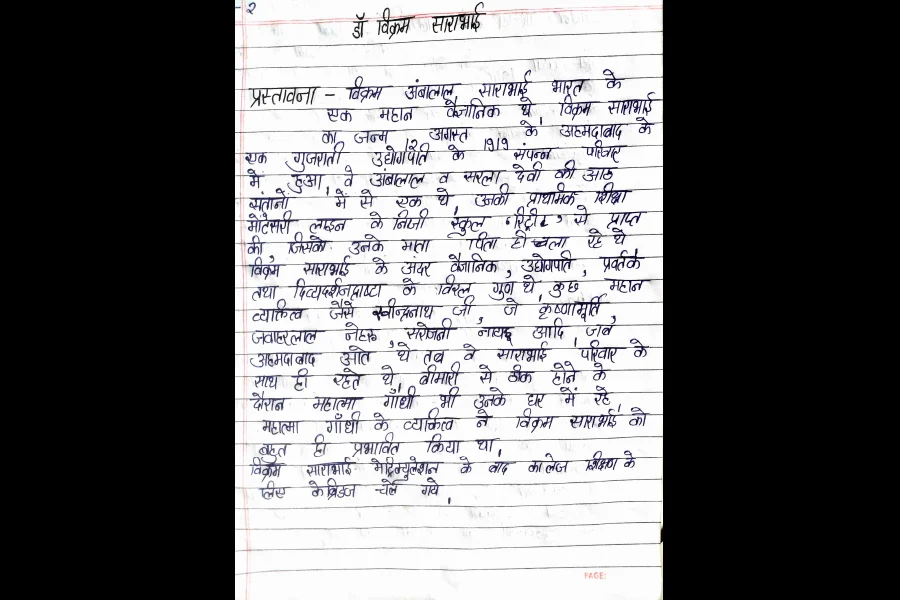 २
डॉ विक्रम साराभाई
प्रस्तावना – विक्रम अंबालाल साराभाई भारत के
एक महान वैज्ञानिक थे। विक्रम साराभाई
का जन्म 12 अगस्त 1919 के, अहमदाबाद के
एक गुजराती उद्योगपति के संपन्न परिवार
में हुआ, वे अंबालाल व सरला देवी की आठ
संतानों में से एक थे, उनकी प्राथमिक शिक्षा
मोंटेसरी लाइन के निजी स्कूल 'रिट्रीट' से प्राप्त
की, जिसको उनके माता पिता ही चला रहे थे,
विक्रम साराभाई के अंदर वैज्ञानिक, उद्योगपति, प्रवर्तक
तथा दिव्यदर्शनद्राष्टा के विरल गुण थे, कुछ महान
व्यक्तित्व जैसे रवीन्द्रनाथ जी, जे कृष्णामूर्ति,
जवाहरलाल नेहरू, सरोजनी नायडू आदि जब
अहमदाबाद आते थे तब वे साराभाई परिवार के
साथ ही रहते थे, बीमारी से ठीक होने के
दौरान महात्मा गाँधी भी उनके घर में रहे,
महात्मा गाँधी के व्यक्तित्व ने विक्रम साराभाई को
बहुत ही प्रभावित किया था,
विक्रम साराभाई मेट्रिक्युलेशन के बाद कालेज शिक्षण के
लिए केंब्रिडज चले गये,
PAGE: